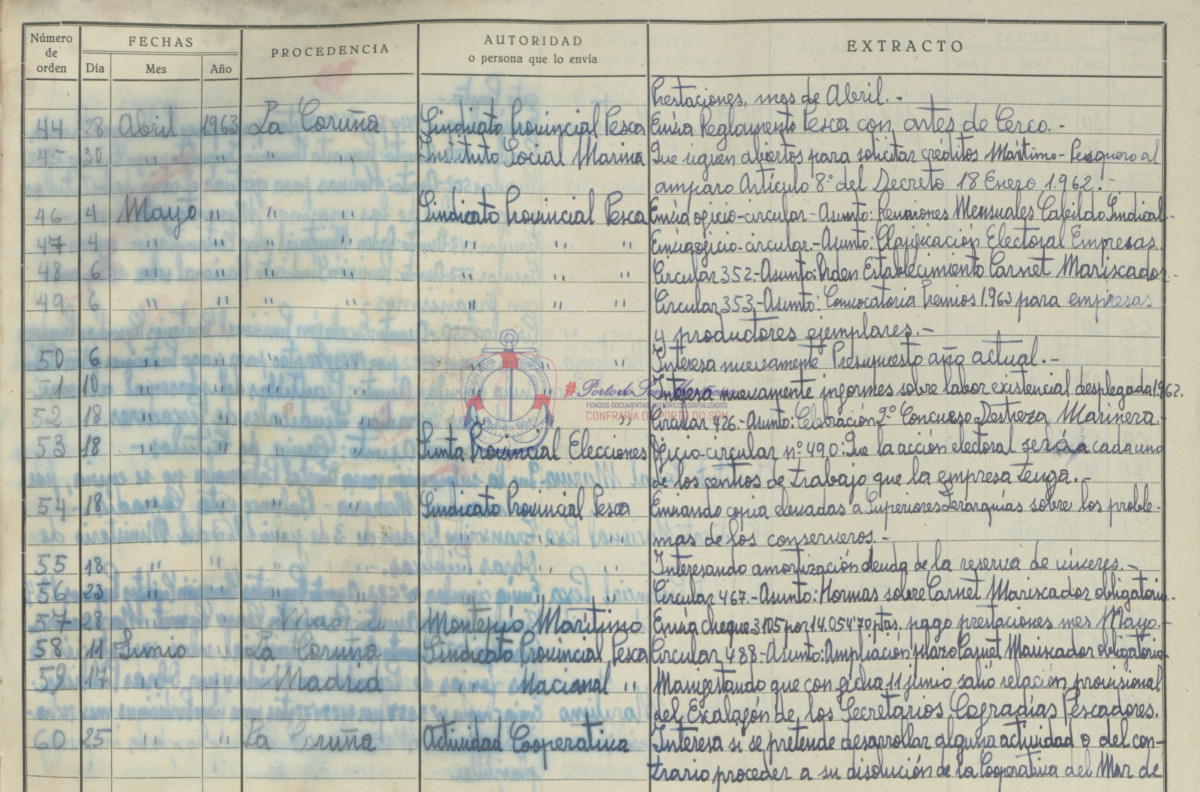 Número de orden FECHAS Día Mes Año PROCEDENCIA AUTORIDAD o persona que lo envía EXTRACTO
Prestaciones, mes de Abril.-
44 28 Abril 1963 La Coruña Sindicato Provincial Pesca Envia Reglamento Pesca con artes de Cerco.-
45 30 " " " " Instituto Social Marina Que siguen abiertos para solicitar créditos Marítimo-Pesquero al
amparo Artículo 8º del Decreto 18 Enero 1.962.-
46 4 Mayo " " " Sindicato Provincial Pesca Envia oficio-circular-Asunto: Reuniones Mensuales Cabildo Sindical-
47 4 " " " " " " " Envia oficio-circular-Asunto: Clasificación Electoral Empresas.
48 6 " " " " " " " Circular 352-Asunto: Orden Establecimiento Carnet Mariscador-
49 6 " " " " " " " Circular 353-Asunto: Convocatoria Premios 1963 para empresas
y productores ejemplares.-
50 6 " " " " " " Interesa nuevamente Presupuesto año actual.-
51 10 " " " " Interesa nuevamente informes sobre labor existencial desplegada 1962.
52 18 " " " " " Circular 426-Asunto: Celebración 2º Concurso Destreza Marinera
53 18 " " " " Junta Provincial Elecciones Oficio-circular nº 490: Que la acción electoral será a cada uno
de los centros de trabajo que la empresa tenga.-
54 18 " " " " Sindicato Provincial Pesca Enviando copia elevadas a Superiores Jerarquías sobre los proble-
mas de los conserveros.-
55 18 " " " " " " Interesando amortización deuda de la reserva de víveres.-
56 23 " " " " " " Circular 467.-Asunto: Normas sobre Carnet Mariscador obligatorio.
57 28 " " Madrid Montepío Marítimo Envia cheque 3105 por 14.054'70 ptas. pago prestaciones mes Mayo.-
58 11 Junio " La Coruña Sindicato Provincial Pesca Circular 488-Asunto: Ampliación plazo Carnet Mariscador obligatorio
59 17 " " Madrid " Nacional " Manifestando que con fecha 11 junio salió relación provisional
del Escalafón de los Secretarios Cofradías Pescadores.
60 25 " " La Coruña Actividad Cooperativa Interesa si se pretende desarrollar alguna actividad o del con-
trario proceder a su disolución de la Cooperativa del Mar de
#Porto do Son
FONDOS DOCUMENTAIS HISTÓRICOS DIXITALIZADOS
CONFRARÍA DE PORTO DO SON